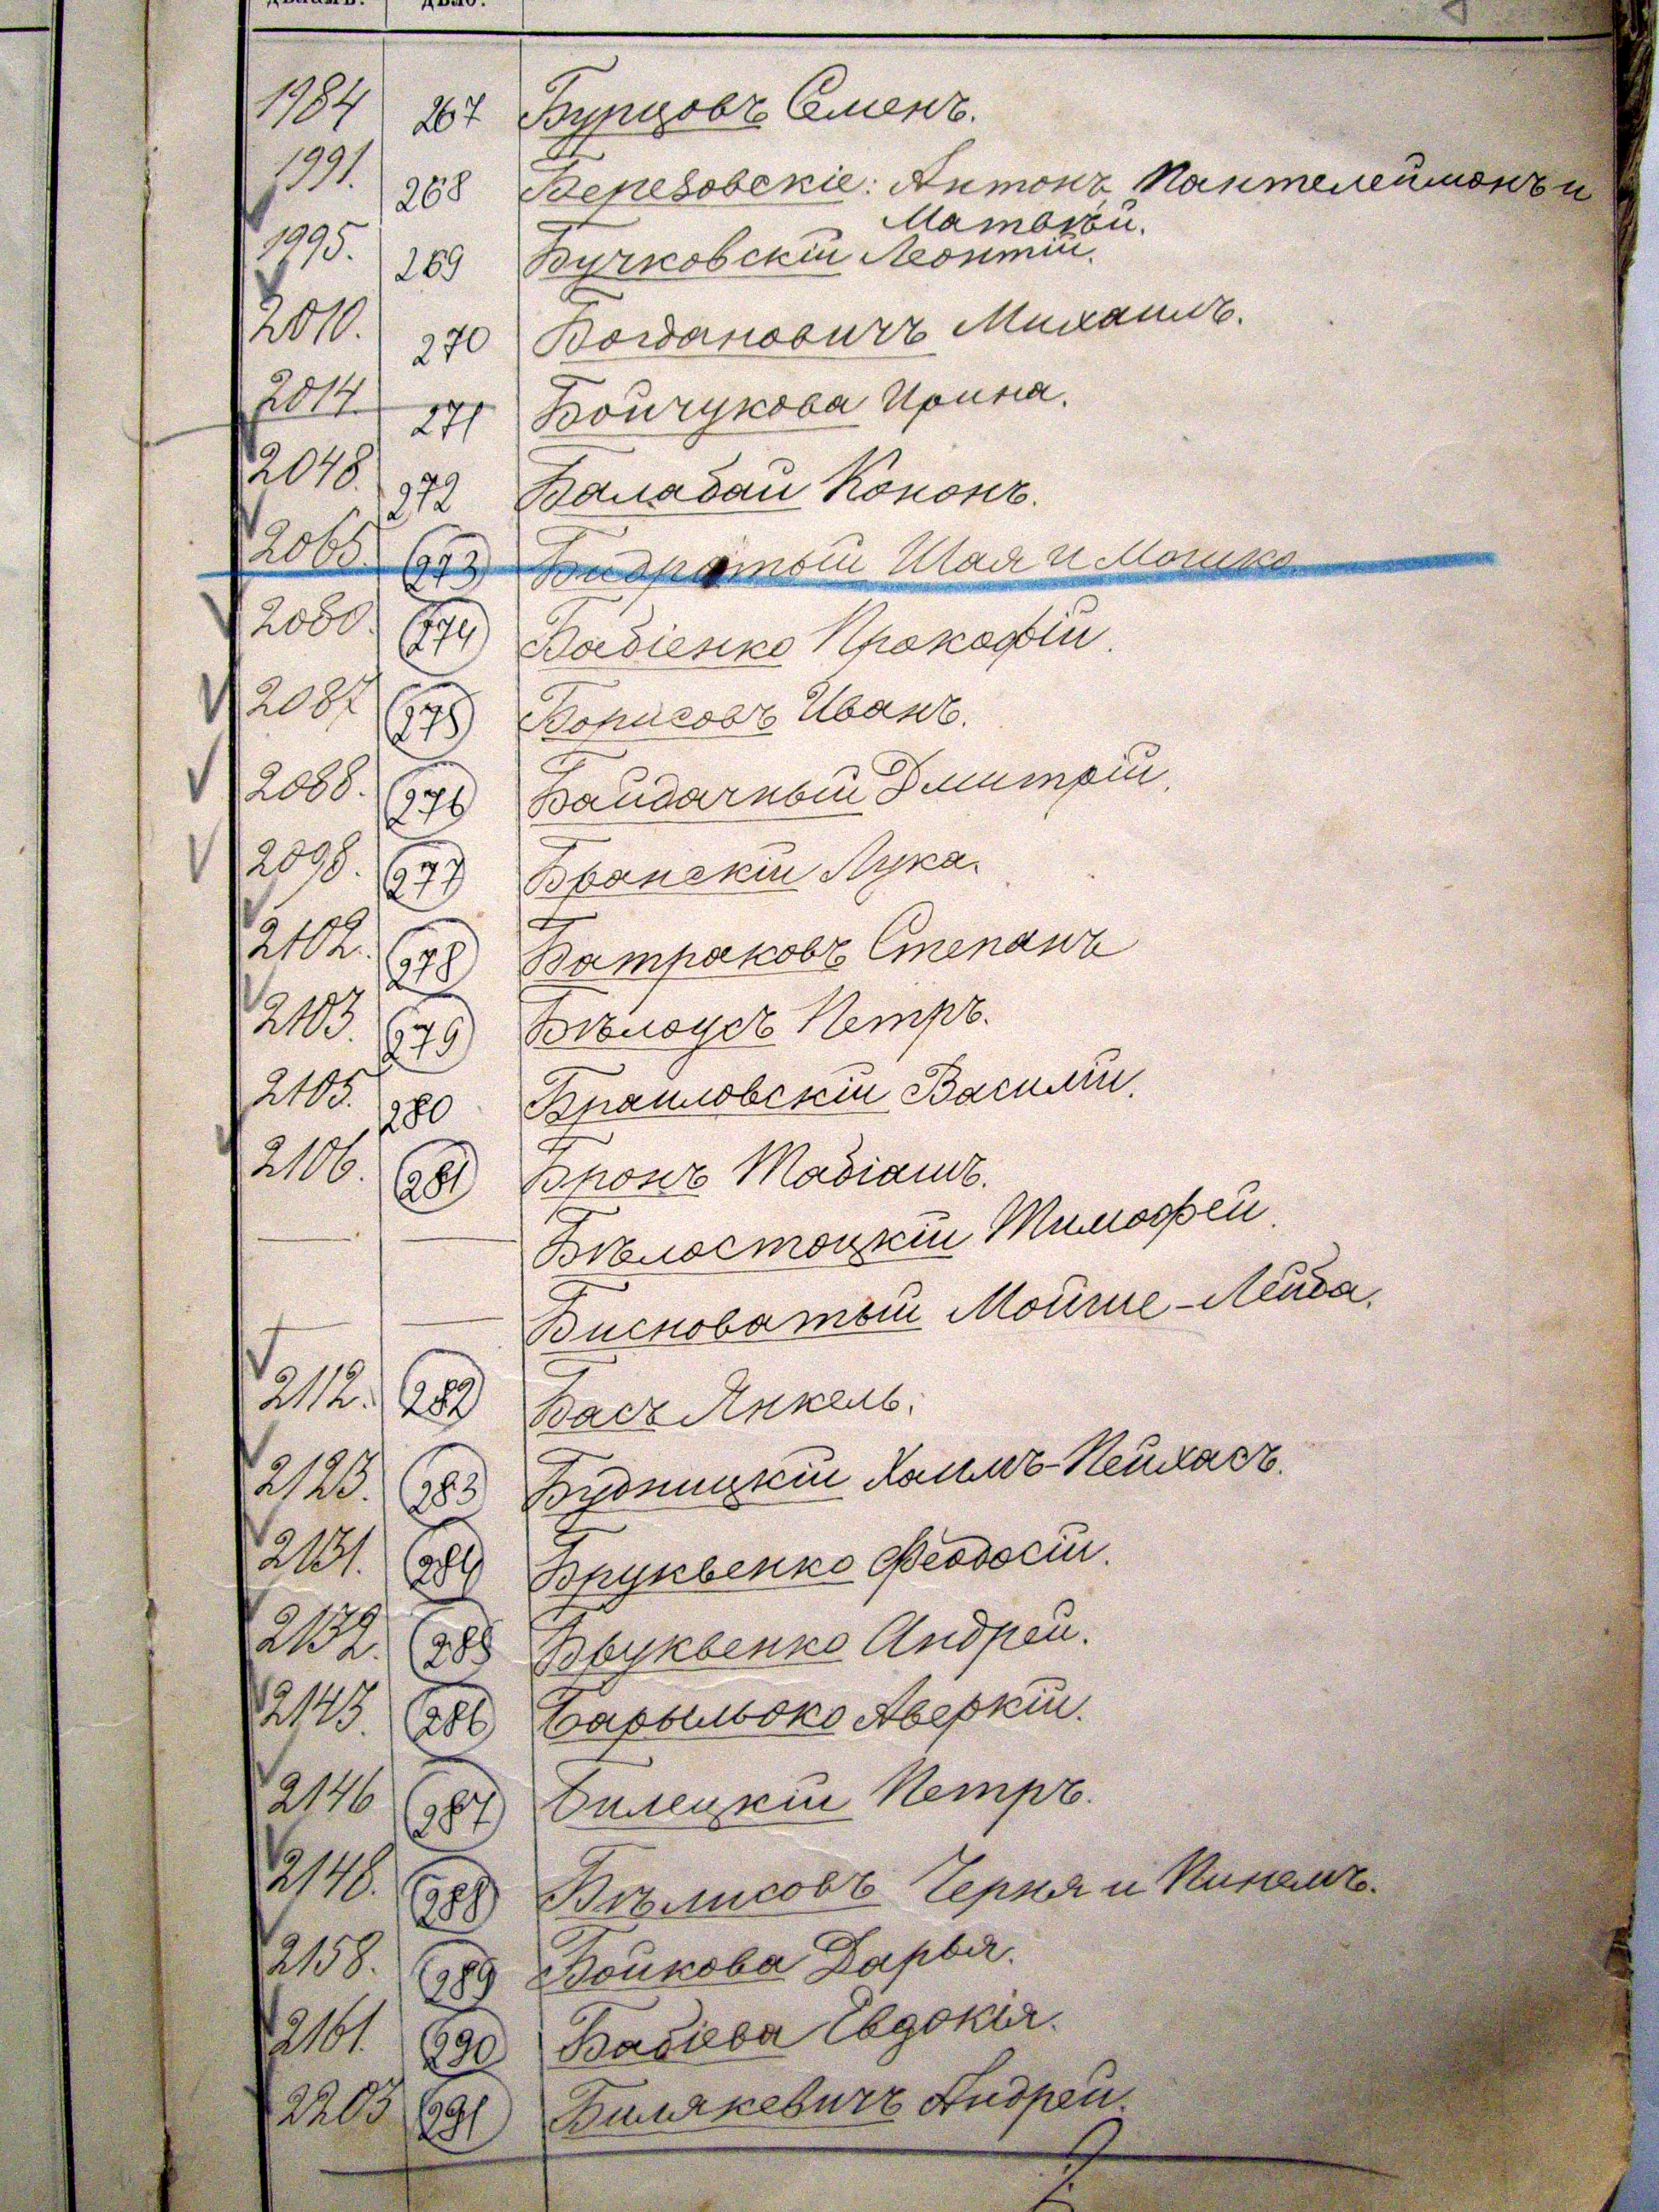 дѣламъ. дѣло.
1984 267 Бурцовъ Семенъ.
1991. 268 Березовскіе: Антонъ, Пантелеймонъ и
Матвѣй.
1995. 269 Бучковскій Леонтій.
2010. 270 Богдановичъ Михаилъ.
2014. 271 Бойчукова Ирина.
2048. 272 Балабай Кононъ.
2065. 273 Шая и Мошко.
2080. 274 Бабіенко Прокофій.
2087 275 Борисовъ Иванъ.
2088. 276 Байдачный Дмитрій.
2098. 277 Бранскій Лука.
2102. 278 Батраковъ Степанъ
2103. 279 Бѣлоусъ Петръ.
2105. 280 Браиловскій Василій.
2106. 281 Бронъ Табіашъ.
Бѣлостоцкій Тимофей.
Бисноватый Мойше-Лейба.
2112. 282 Басъ Янкель.
2123. 283 Будницкій Хаимъ-Пейхасъ.
2131. 284 Бруквенко Феодосій.
2132. 285 Бруквенко Андрей.
2143. 286 Барылько Аверкій.
2146 287 Билецкій Петръ.
2148. 288 Бѣлисовъ Черня и Пинелъ.
2158. 289 Бойкова Дарья.
2161. 290 Бабіева Евдокія.
2203 291 Билякевичъ Андрей.